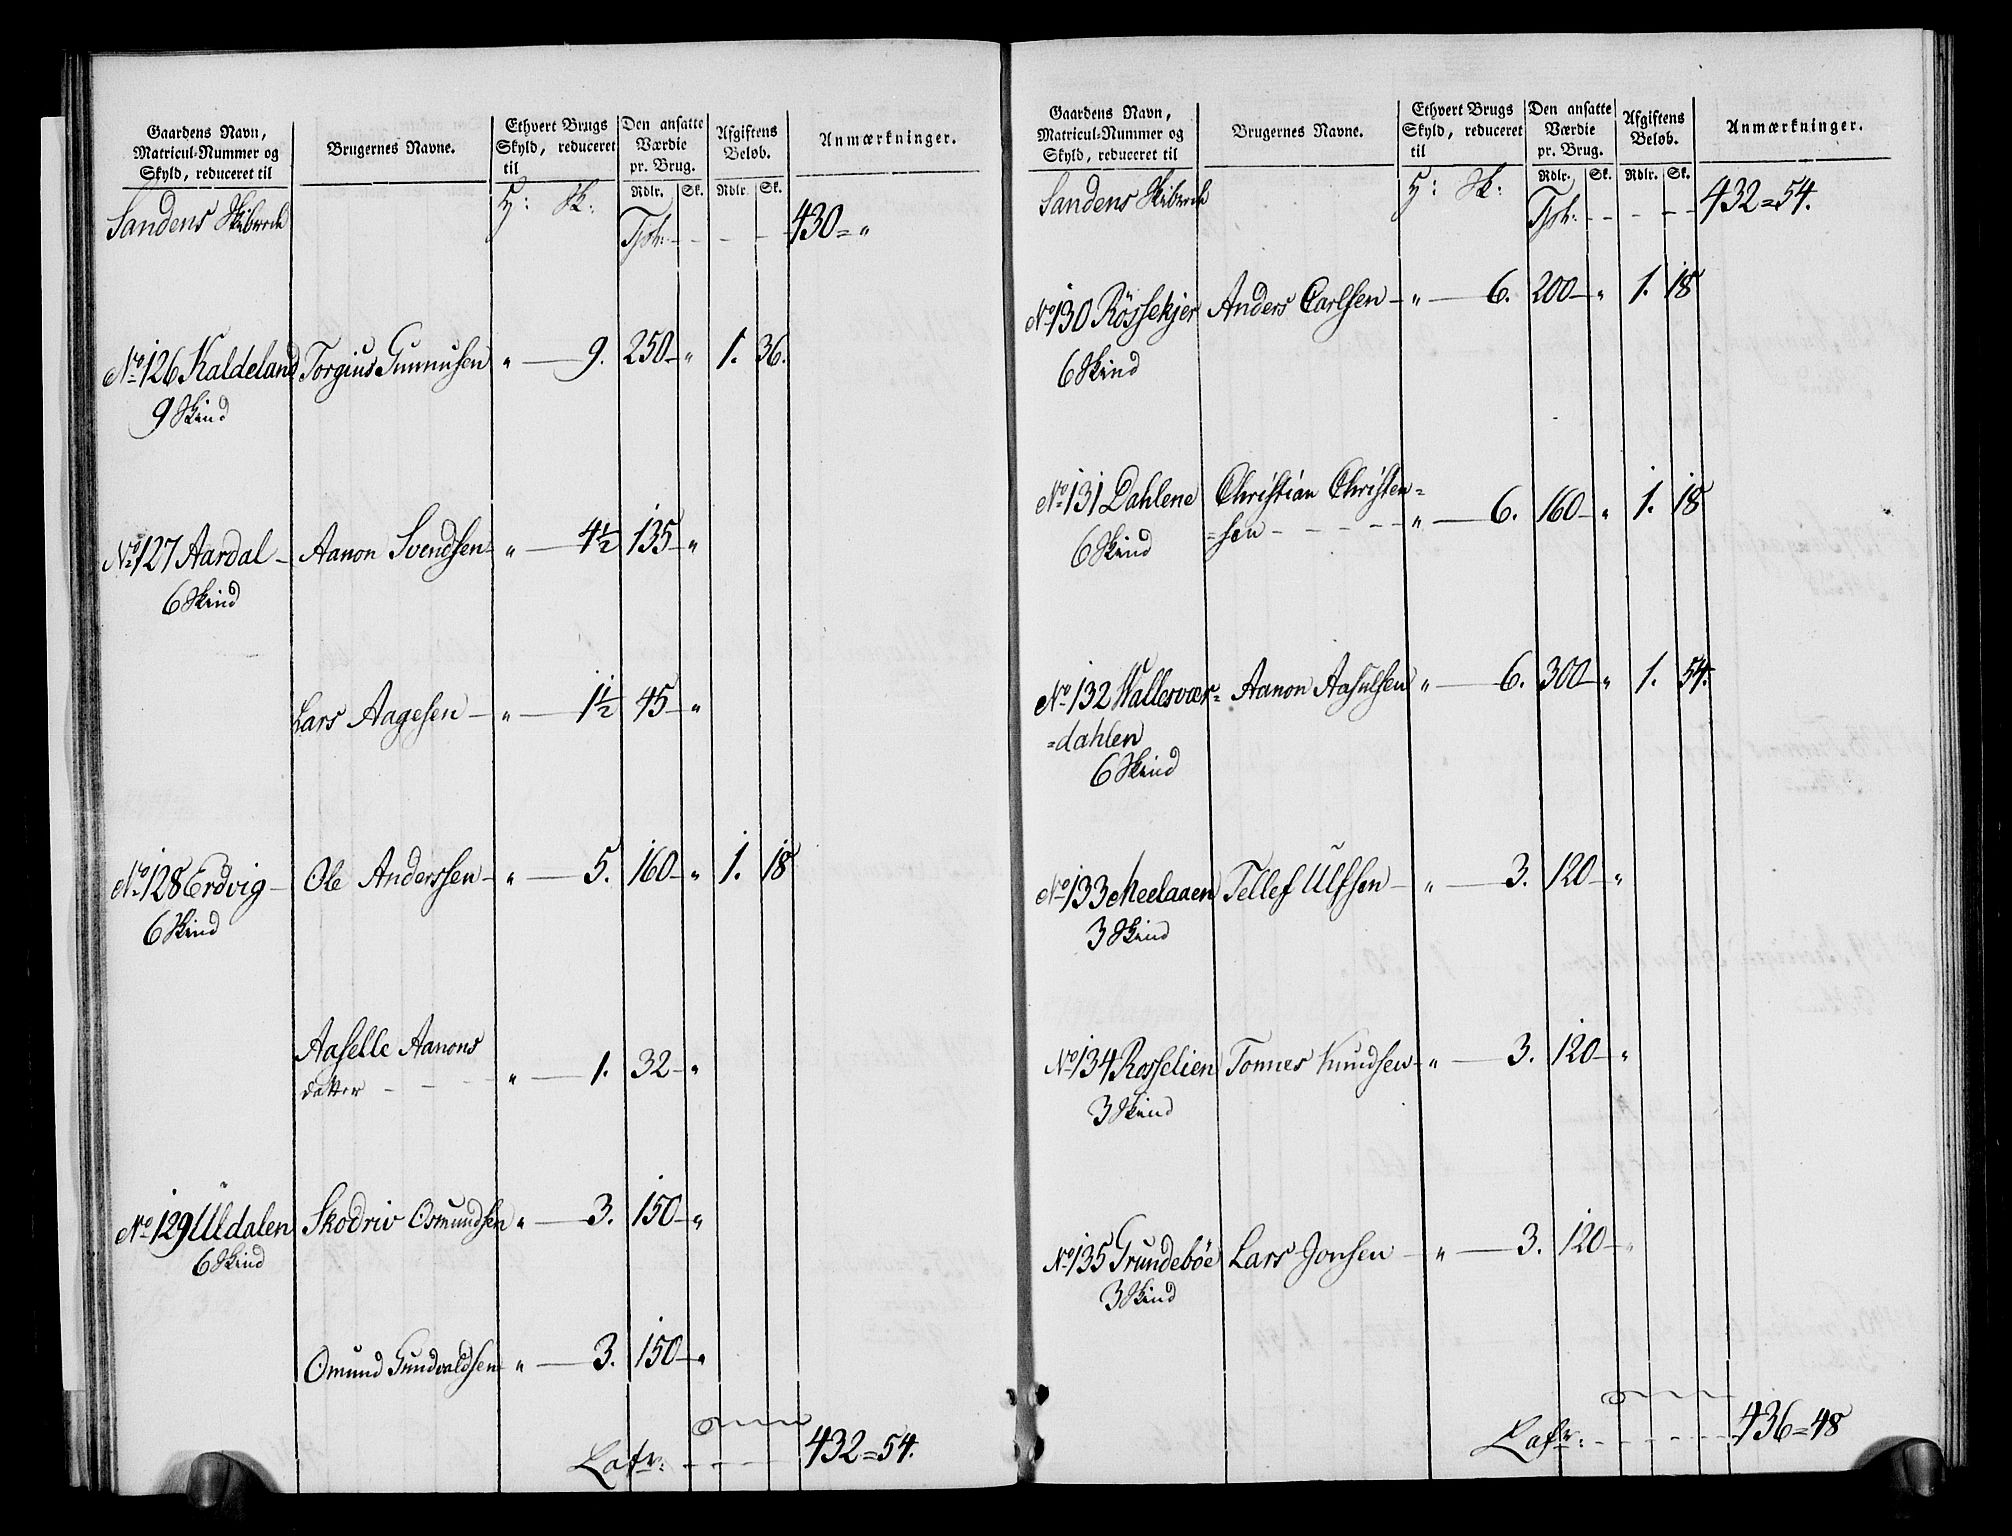 Gaardens Navn, Matricul-Nummer og Skyld, reduceret til | Brugernes Navne. | Ethvert Brugs Skyld, reduceret til | Den ansatte Værdie pr. Brug. | Afgiftens Beløb. | Anmærkninger.
H: Sk: | Rdlr. | Sk. | Rdlr. | Sk.
Sandens Skibrede Tpt: - - - - 430 = "
No 126 Kaldeland Torgius Gunnusen " — 9. 250 — " 1. 36.
9 Skind
No 127 Aardal — Aanon Svendsen — " — 4½ 135 — "
6 Skind
Lars Aagesen — " — 1½ 45 — "
No 128 Erdvig — Ole Anderssen — " — 5. 160 — " 1. 18
6 Skind
Aaselle Aanons
datter - - - " — 1. 32 — "
No 129 Uldalen Skodriv Osmundsen " — 3. 150 — "
6 Skind
Omund Gundvaldsen — " — 3. 150 — "
Latr: - - - - 432 = 54.
Gaardens Navn, Matricul-Nummer og Skyld, reduceret til | Brugernes Navne. | Ethvert Brugs Skyld, reduceret til | Den ansatte Værdie pr. Brug. | Afgiftens Beløb. | Anmærkninger.
H: Sk: | Rdlr. | Sk. | Rdlr. | Sk.
Sandens Skibrede Tpt: - - - - 432 = 54.
No 130 Røssekjer Anders Carlsen — " — 6. 200 — " 1. 18
6 Skind
No 131 Dahlene Christian Christen=
=sen - - - - " — 6. 160 — " 1. 18
6 Skind
No 132 Wallesvær= Aanon Aasulsen " — 6. 300 — " 1. 54.
=dahlen
6 Skind
No 133 Meelaaen Tellef Ulfsen — " — 3. 120 — "
3 Skind
No 134 Rosselien Tonnes Knudsen — " — 3. 120 — "
3 Skind
No 135 Grundebøe Lars Jonsen — " — 3. 120 — "
3 Skind
Latr: - - - - 436 = 48